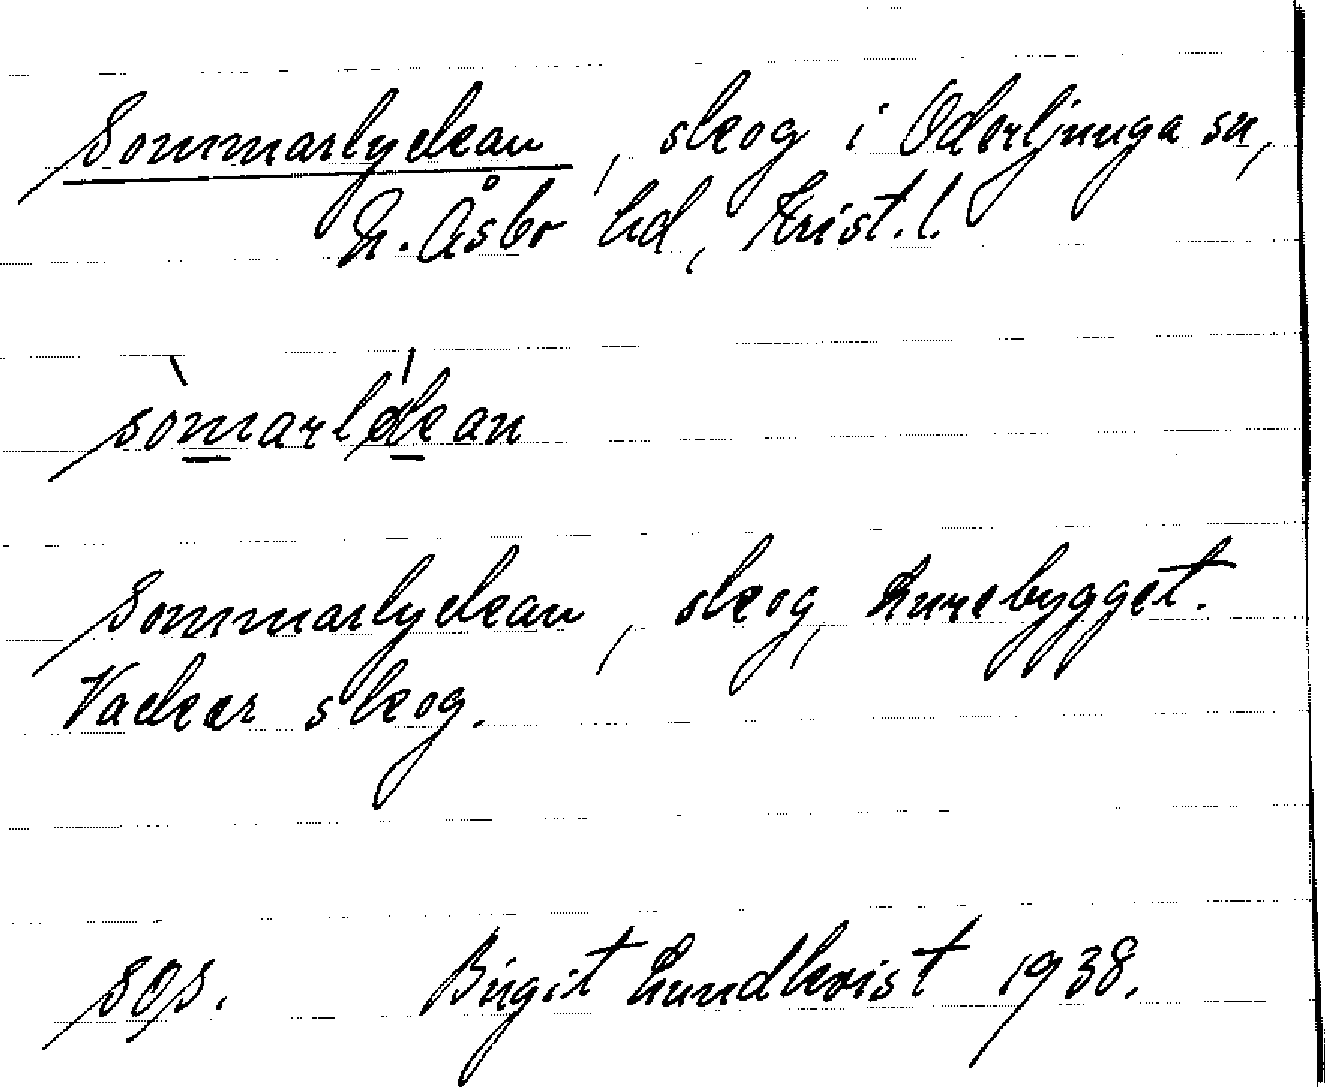 Sommarlyckan, skog i Oderljunga sn,
N. Åsbo hd, Krist. l.
sòmarlǿkan
Sommarlyckan, skog, Lurebygget.
Vacker skog.
SOS. Birgit Lundkvist 1938.